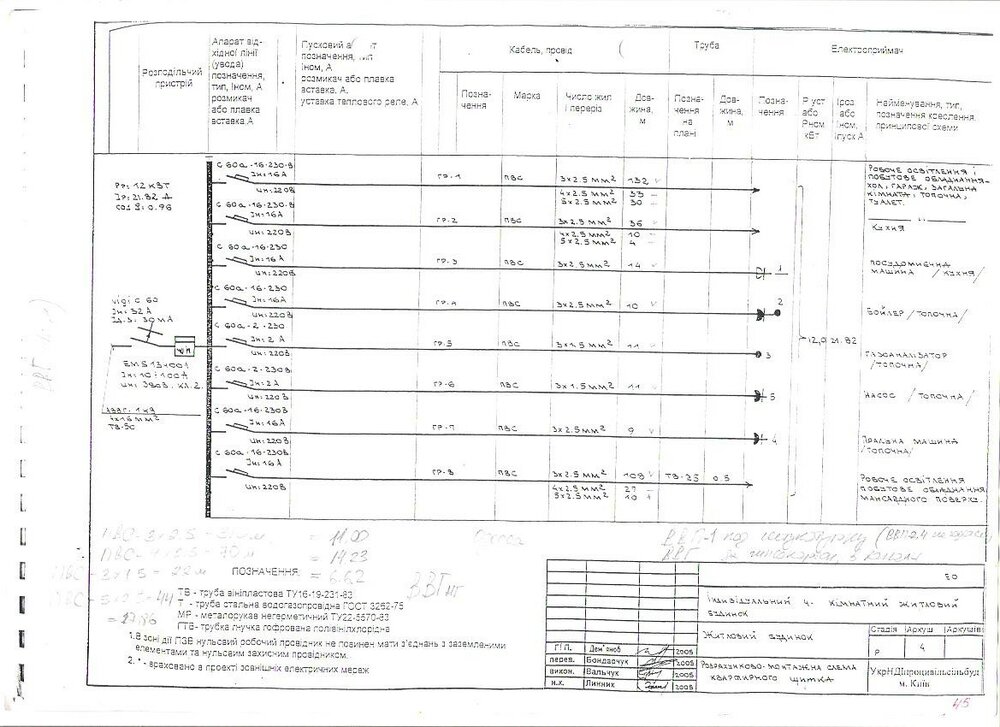 Розподільчий
пристрій
Апарат від-
хідної лінії
(увода)
позначення,
тип, Іном, А
розмикач
або плавка
вставка.А
Пусковий
позначення,
Іном, А
розмикач або плавка
вставка. А.
уставка теплового реле, А
Кабель, провід
Позна-
чення
Марка
Число жил
і переріз
Дов-
жина,
м
Труба
Позна-
чення
на
плані
Дов-
жина,
м
Електроприймач
Позна-
чення
Р уст
або
Рном
кВт
Іроз
або
Іном,
Іпуск А
Найменування, тип,
позначення креслення,
принципової схеми
Рр: 12 кВт
Ір: 21.82 А
cos φ: 0.96
vigi C 60
Ін: 32А
Ід.з: 30мА
EMS 134001
Ін: 10÷100А
Uн: 380В. кл.2.
4х16мм²
ТВ-50
C 60a-16-230-В
Ін: 16А
Uн: 220В
ГР-1 ПВС 3х2.5мм² 132
4х2.5мм² 33
5х2.5мм² 30
Робоче освітлення і
побутове обладнання-
хол, гараж, загальна
кімната, топочна,
туалет.
C 60a-16-230-В
Ін: 16А
Uн: 220В
ГР-2 ПВС 3х2.5мм² 36
4х2.5мм² 10
5х2.5мм² 4
Кухня
C 60a-16-230
Ін: 16А
Uн: 220В
ГР-3 ПВС 3х2.5мм² 14
1
Посудомиєчна
машина /кухня/
C 60a-16-230
Ін: 16А
Uн: 220В
ГР-4 ПВС 3х2.5мм² 10
2
Бойлер /топочна/
C 60a-2-230
Ін: 2А
Uн: 220В
ГР-5 ПВС 3х1.5мм² 11
3
12,0 21.82
Газоаналізатор
/топочна/
C 60a-2-230В
Ін: 2А
Uн: 220В
ГР-6 ПВС 3х1.5мм² 11
5
Насос /топочна/
C 60a-16-230В
Ін: 16А
Uн: 220В
ГР-7 ПВС 3х2.5мм² 9
4
Пральна машина
/топочна/
C 60a-16-230В
Ін: 16А
Uн: 220В
ГР-8 ПВС 3х2.5мм² 109 ТВ-25 0.5
4х2.5мм² 27
5х2.5мм² 10
Робоче освітлення
побутове обладнання
мансардного поверху.
= 14.23
= 6.62
ПВС - 3х1.5 - 22м
ВВГнг
ПОЗНАЧЕННЯ
ТВ - труба вініпластова ТУ16-19-231-83
Т - труба стальна водогазопровідна ГОСТ 3262-75
МР - металорукав негерметичний ТУ22-5570-83
ГТВ- трубка гнучка гофрована полівінілхлорідна
1.В зоні дії ПЗВ нульсвий робочий провідник не повинен мати з'єднань з заземленими
елементами та нульсвим захисним провідником.
2. * - враховано в проекті зовнішніх електричних мереж
ЕО
Індивідуальний 4- кімнатний житловий
будинок
Житловий будинок
Стадія Аркуш Аркушів
Р 4
ГІП. 2005
перев. Бондарчук 2005
викон. Вальчук 2005
н.к. Линник 2005
Розрахунково-монтажна схема
квартирного щитка
УкрНДІпроцивільсільбуд
м. Київ
45